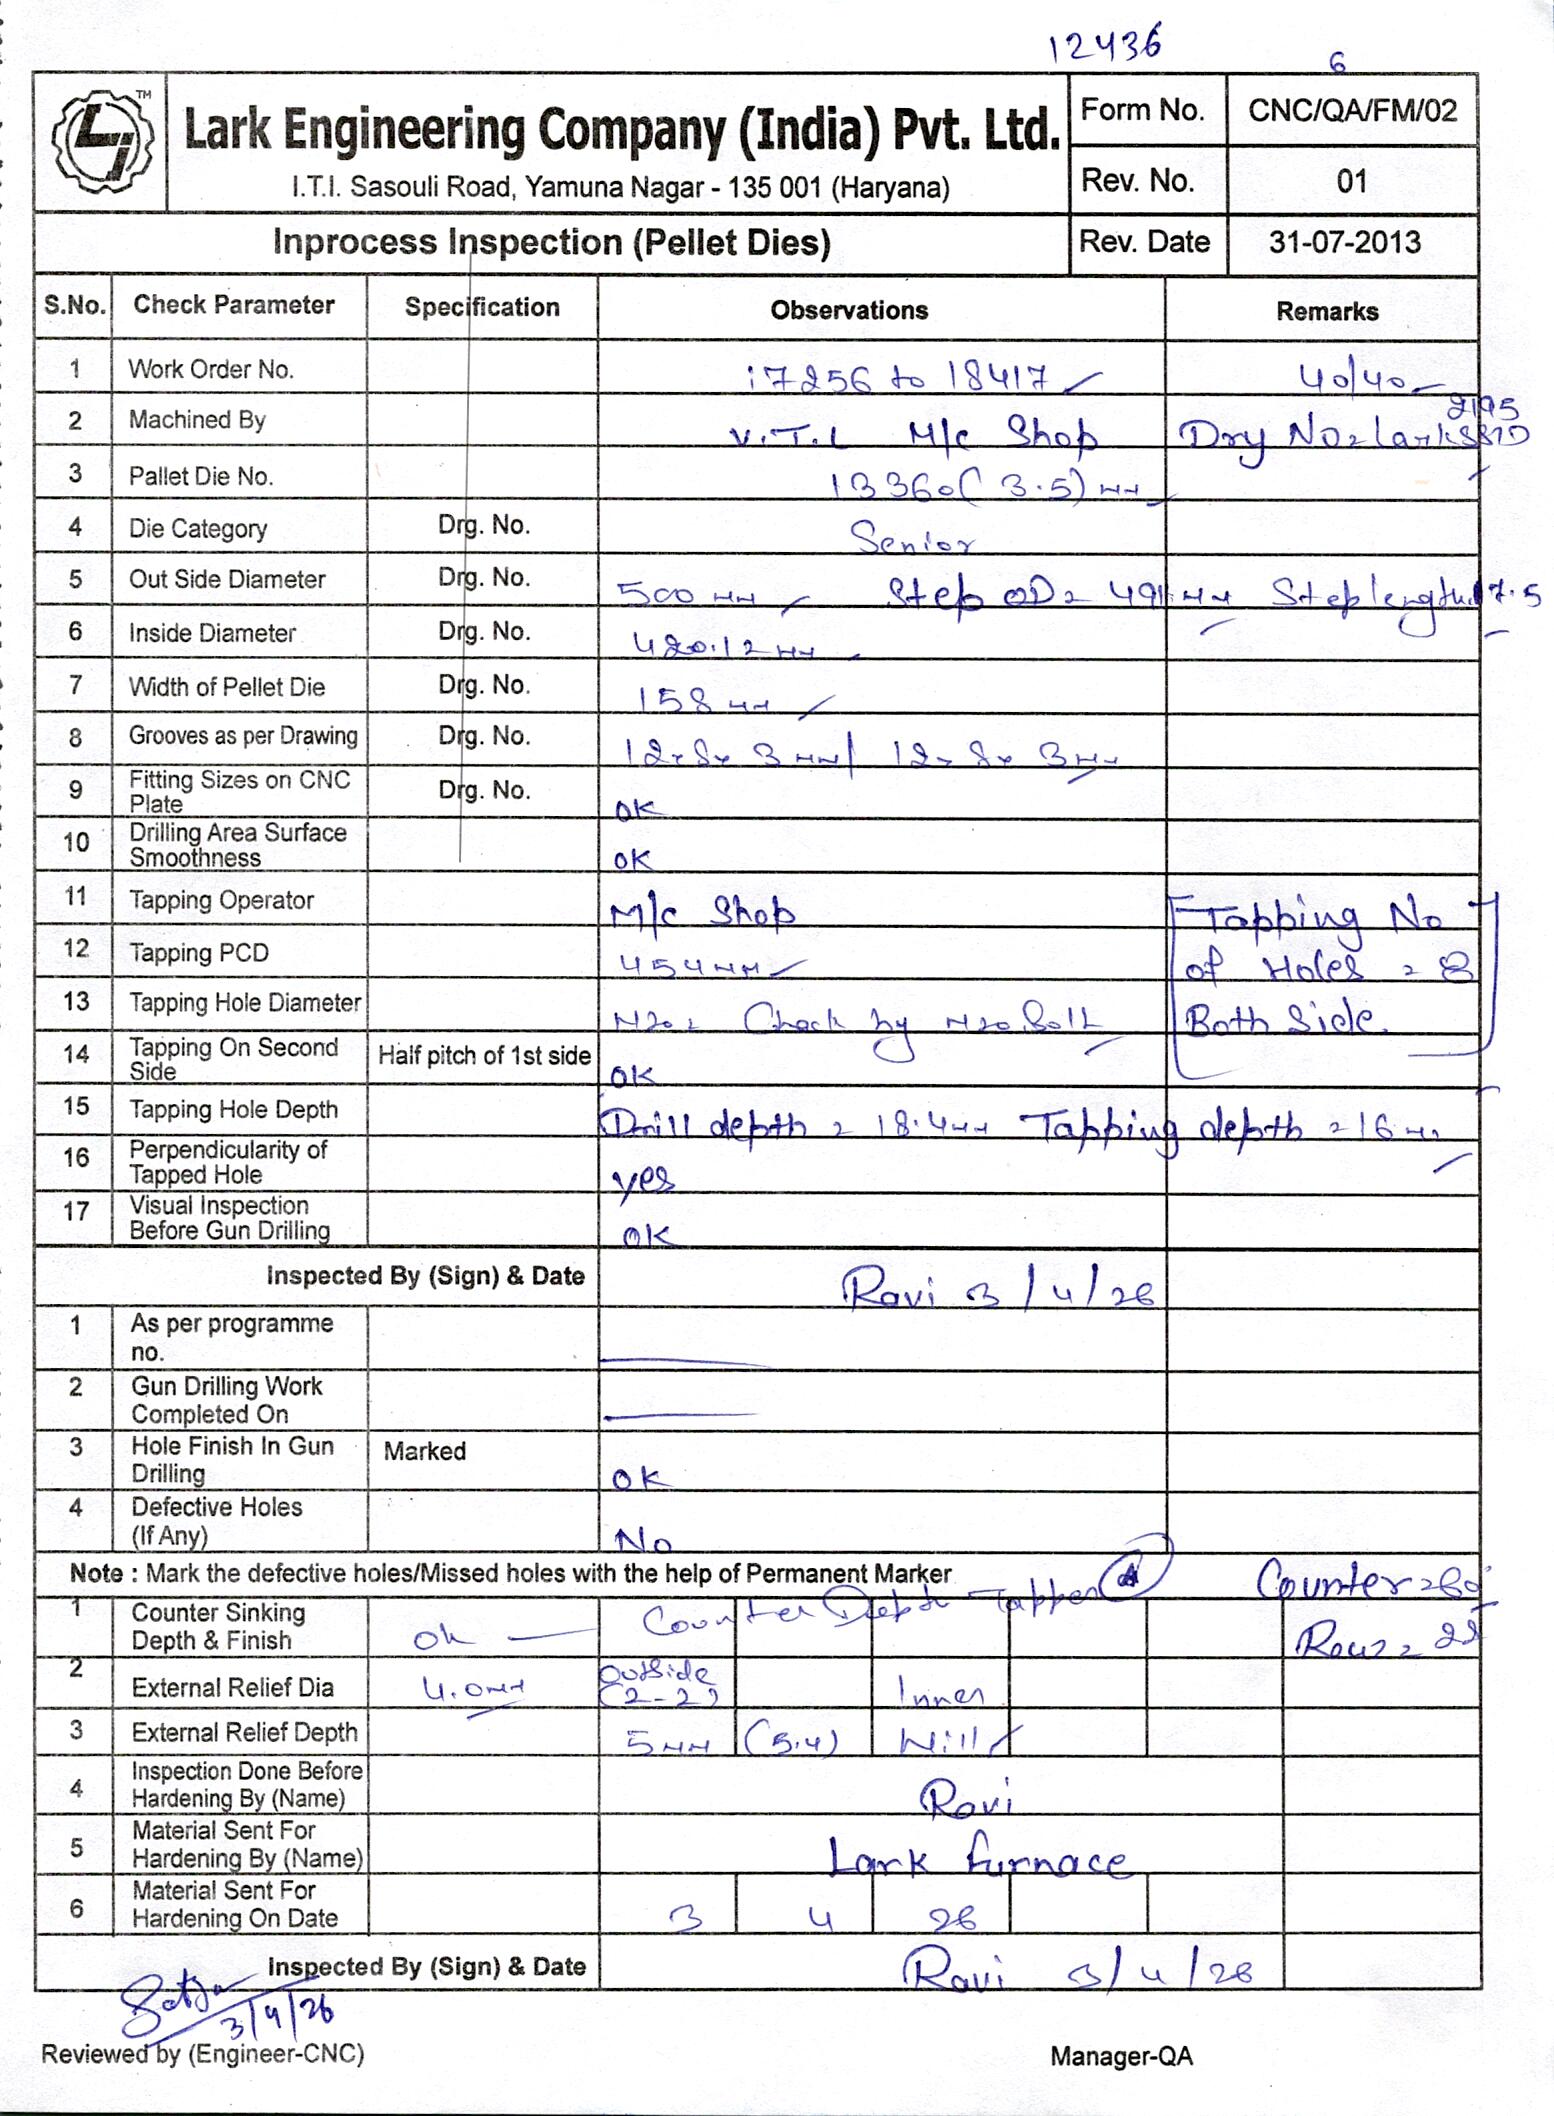 12436
6
TM
Lark Engineering Company (India) Pvt. Ltd.
I.T.I. Sasouli Road, Yamuna Nagar - 135 001 (Haryana)
Form No. CNC/QA/FM/02
Rev. No. 01
Inprocess Inspection (Pellet Dies) Rev. Date 31-07-2013
S.No. Check Parameter Specification Observations Remarks
1 Work Order No. 17256 to 18417 40/40
2 Machined By V.T.L M/c Shop Dry No=Lark
3 Pallet Die No. 13360(3.5) mm
4 Die Category Drg. No. Senior
5 Out Side Diameter Drg. No. 500 mm Step OD= 491 mm Step length 17.5
6 Inside Diameter Drg. No. 420.12 mm
7 Width of Pellet Die Drg. No. 158 mm
8 Grooves as per Drawing Drg. No. 12x8x3 mm/ 12x8x3 mm
9 Fitting Sizes on CNC Plate Drg. No. OK
10 Drilling Area Surface Smoothness OK
11 Tapping Operator M/c Shop Tapping No
12 Tapping PCD 454 mm of Holes = 8
13 Tapping Hole Diameter M20= Check by M20 Bolt Both Side.
14 Tapping On Second Side Half pitch of 1st side OK
15 Tapping Hole Depth Drill depth = 18.4 mm Tapping depth = 16 mm
16 Perpendicularity of Tapped Hole yes
17 Visual Inspection Before Gun Drilling OK
Inspected By (Sign) & Date Ravi 3/4/26
1 As per programme no.
2 Gun Drilling Work Completed On
3 Hole Finish In Gun Drilling Marked OK
4 Defective Holes (If Any) No
Note : Mark the defective holes/Missed holes with the help of Permanent Marker Counter=60°
1 Counter Sinking Depth & Finish Ok Counter Depth Tapper Row= 22
2 External Relief Dia 4.0mm Outside (2-2) Inner
3 External Relief Depth 5mm (5.4) Nill
4 Inspection Done Before Hardening By (Name) Ravi
5 Material Sent For Hardening By (Name) Lark furnace
6 Material Sent For Hardening On Date 3 4 26
Inspected By (Sign) & Date Ravi 3/4/26
3/4/26
Reviewed by (Engineer-CNC) Manager-QA